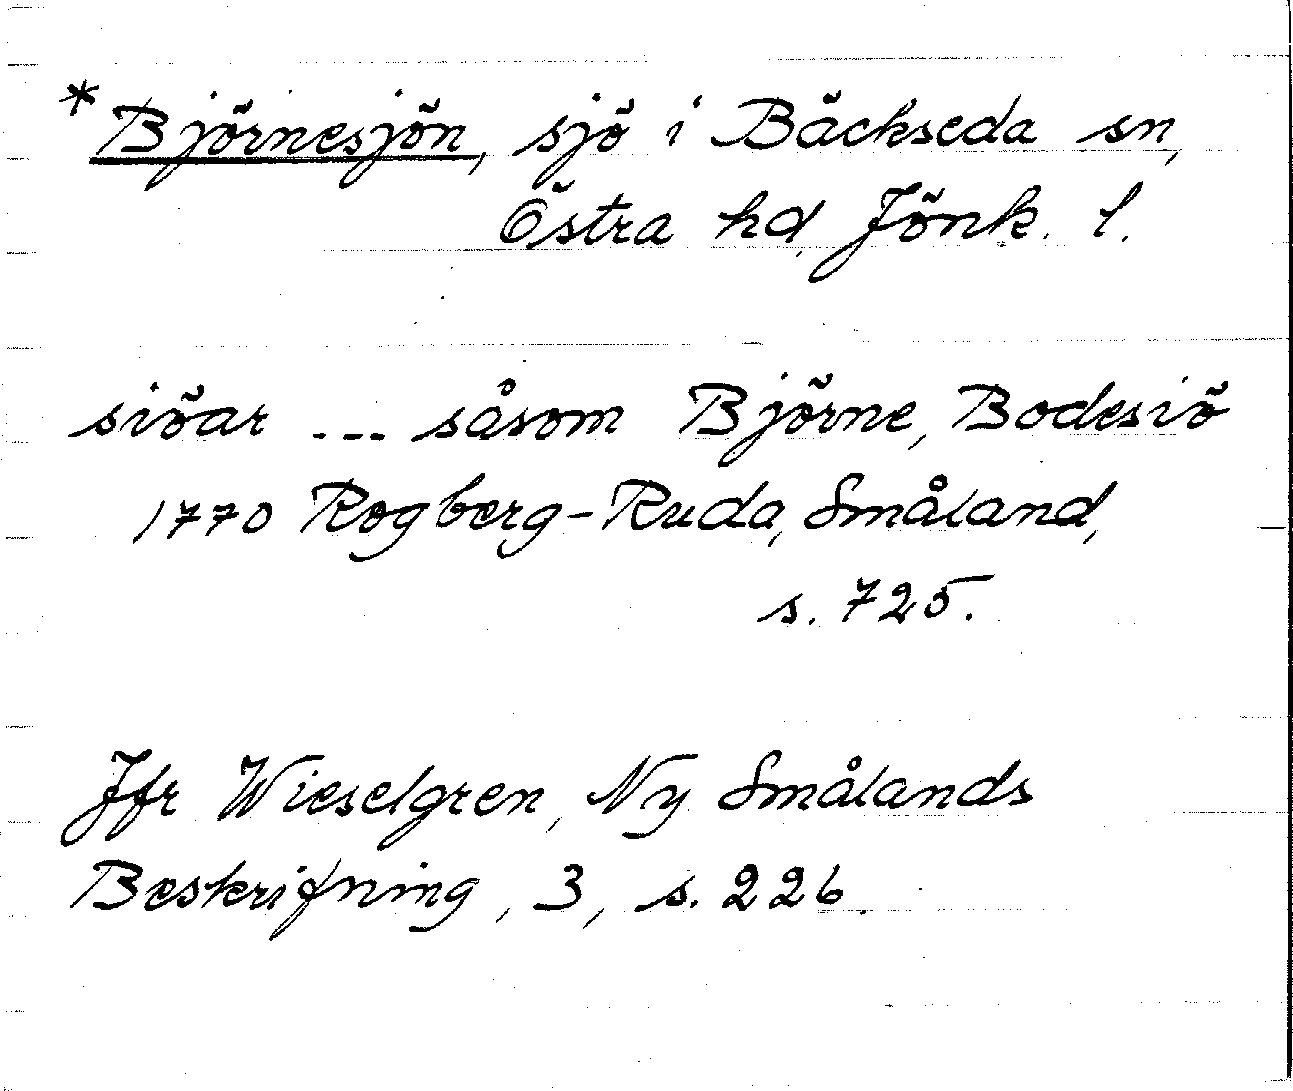 * Björnesjön, sjö i Bäckseda sn,
Östra hd, Jönk. l.
siöar --- såsom Björne, Bodesiö
1770 Rogberg-Ruda, Småland,
s. 725.
Jfr Wieselgren, Ny Smålands
Beskrifning, 3, s. 226.